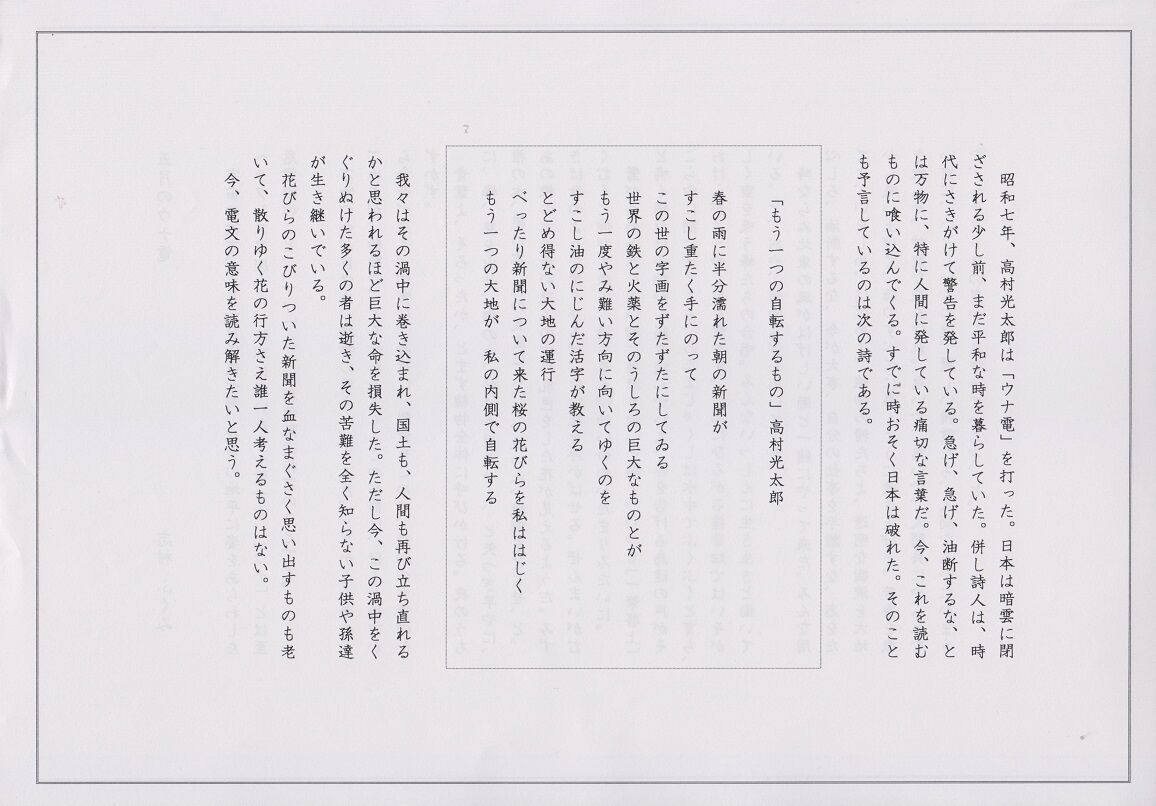 昭和七年、高村光太郎は「ウナ電」を打った。日本は暗雲に閉
ざされる少し前、まだ平和な時を暮らしていた。併し詩人は、時
代にさきがけて警告を発している。急げ、急げ、油断するな、と
は万物に、特に人間に発している痛切な言葉だ。今、これを読む
ものに喰い込んでくる。すでに時おそく日本は破れた。そのこと
も予言しているのは次の詩である。
「もう一つの自転するもの」高村光太郎
春の雨に半分濡れた朝の新聞が
すこし重たく手にのって
この世の字画をずたずたにしてゐる
世界の鉄と火薬とそのうしろの巨大なものとが
もう一度やみ難い方向に向いてゆくのを
すこし油のにじんだ活字が教える
とどめ得ない大地の運行
べったり新聞について来た桜の花びらを私ははじく
もう一つの大地が　私の内側で自転する
我々はその渦中に巻き込まれ、国土も、人間も再び立ち直れる
かと思われるほど巨大な命を損失した。ただし今、この渦中をく
ぐりぬけた多くの者は逝き、その苦難を全く知らない子供や孫達
が生き継いでいる。
花びらのこびりついた新聞を血なまぐさく思い出すものも老
いて、散りゆく花の行方さえ誰一人考えるものはない。
今、電文の意味を読み解きたいと思う。